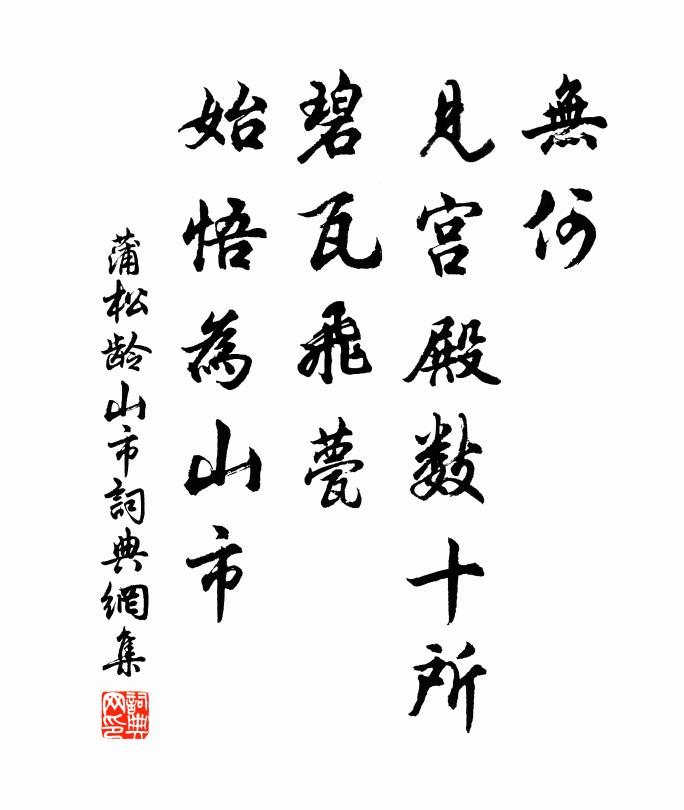 無何
見宮殿数十所
碧瓦飛甍
始悟為山市
蒲松齡山市詞典網集
詞典网印